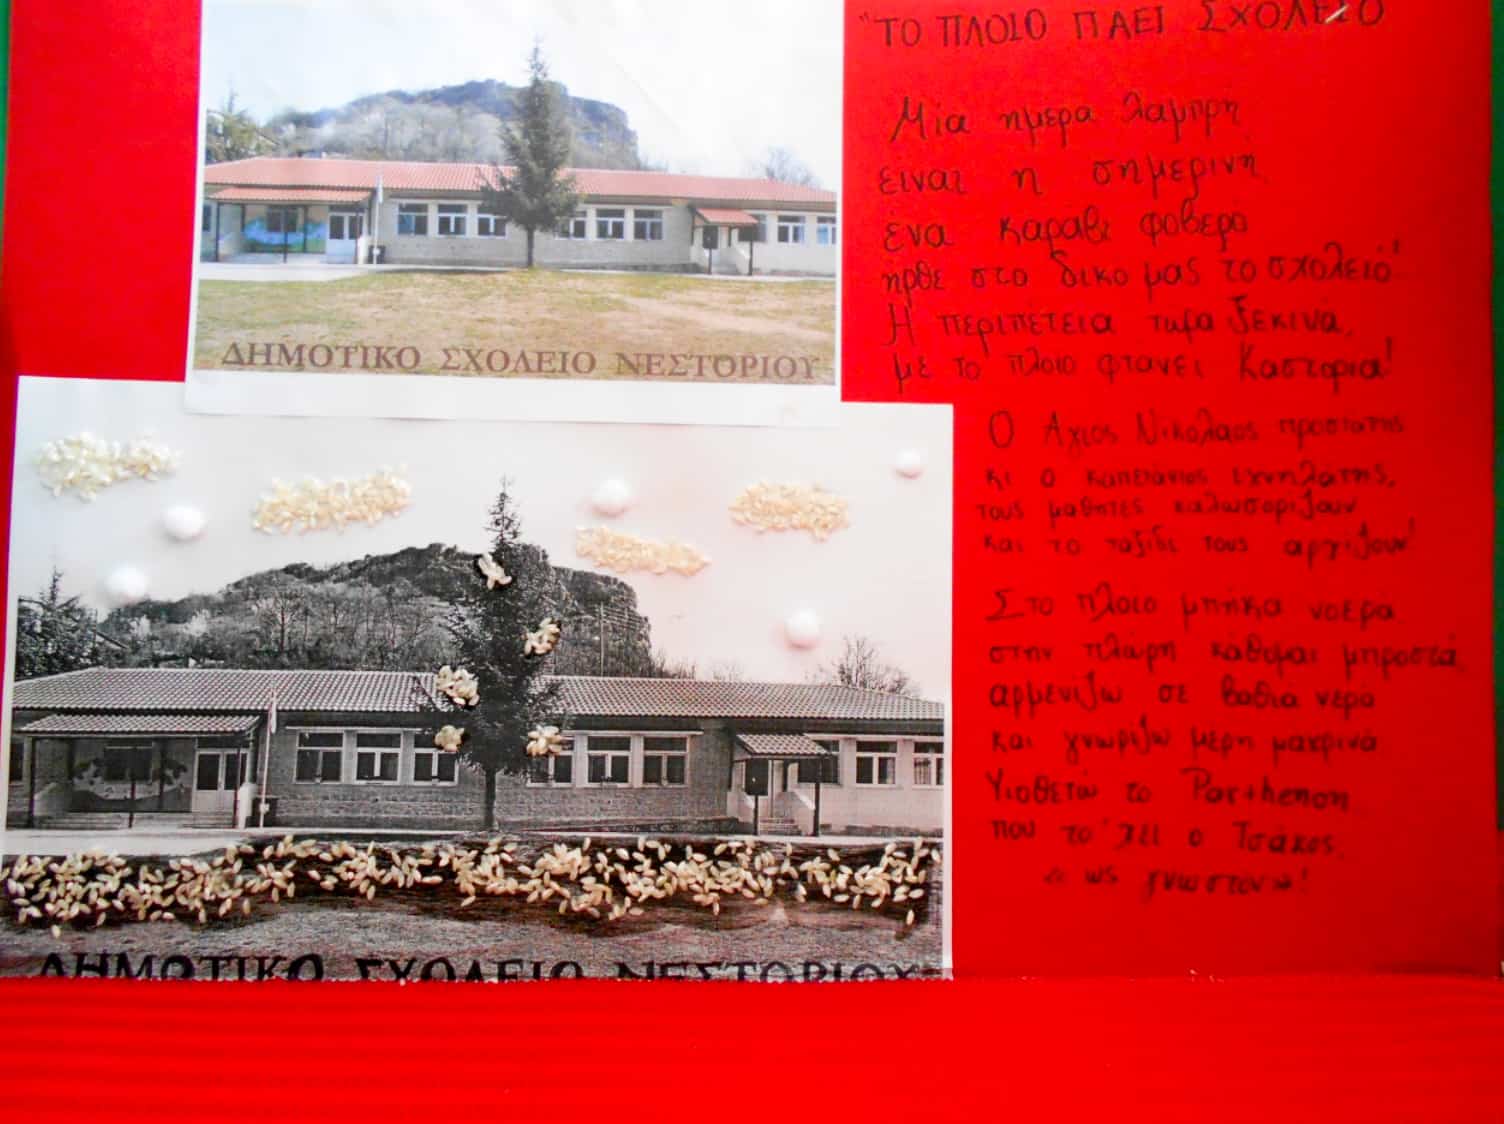 ΔΗΜΟΤΙΚΟ ΣΧΟΛΕΙΟ ΝΕΣΤΟΡΙΟΥ
ΔΗΜΟΤΙΚΟ ΣΧΟΛΕΙΟ ΝΕΣΤΟΡΙΟΥ
"ΤΟ ΠΛΟΙΟ ΠΑΕΙ ΣΧΟΛΕΙΟ
Μία ημέρα λαμπρή
είναι η σημερινή
ένα καράβι φοβερό
ήρθε στο δικό μας το σχολείο!
Η περιπέτεια τώρα ξεκινά,
με το πλοίο φτάνει Καστοριά!
Ο Άγιος Νικόλαος προστάτης
κι ο καπετάνιος ιχνηλάτης,
τους μαθητές καλωσορίζουν
και το ταξίδι τους αρχίζουν!
Στο πλοίο μπήκα νοερά
στην πλώρη κάθομαι μπροστά
αρμενίζω σε βαθιά νερά
και γνωρίζω μέρη μακρινά
Υιοθετώ το Parthenon
που το 'χει ο Τσάκος
ως γνωστόν!